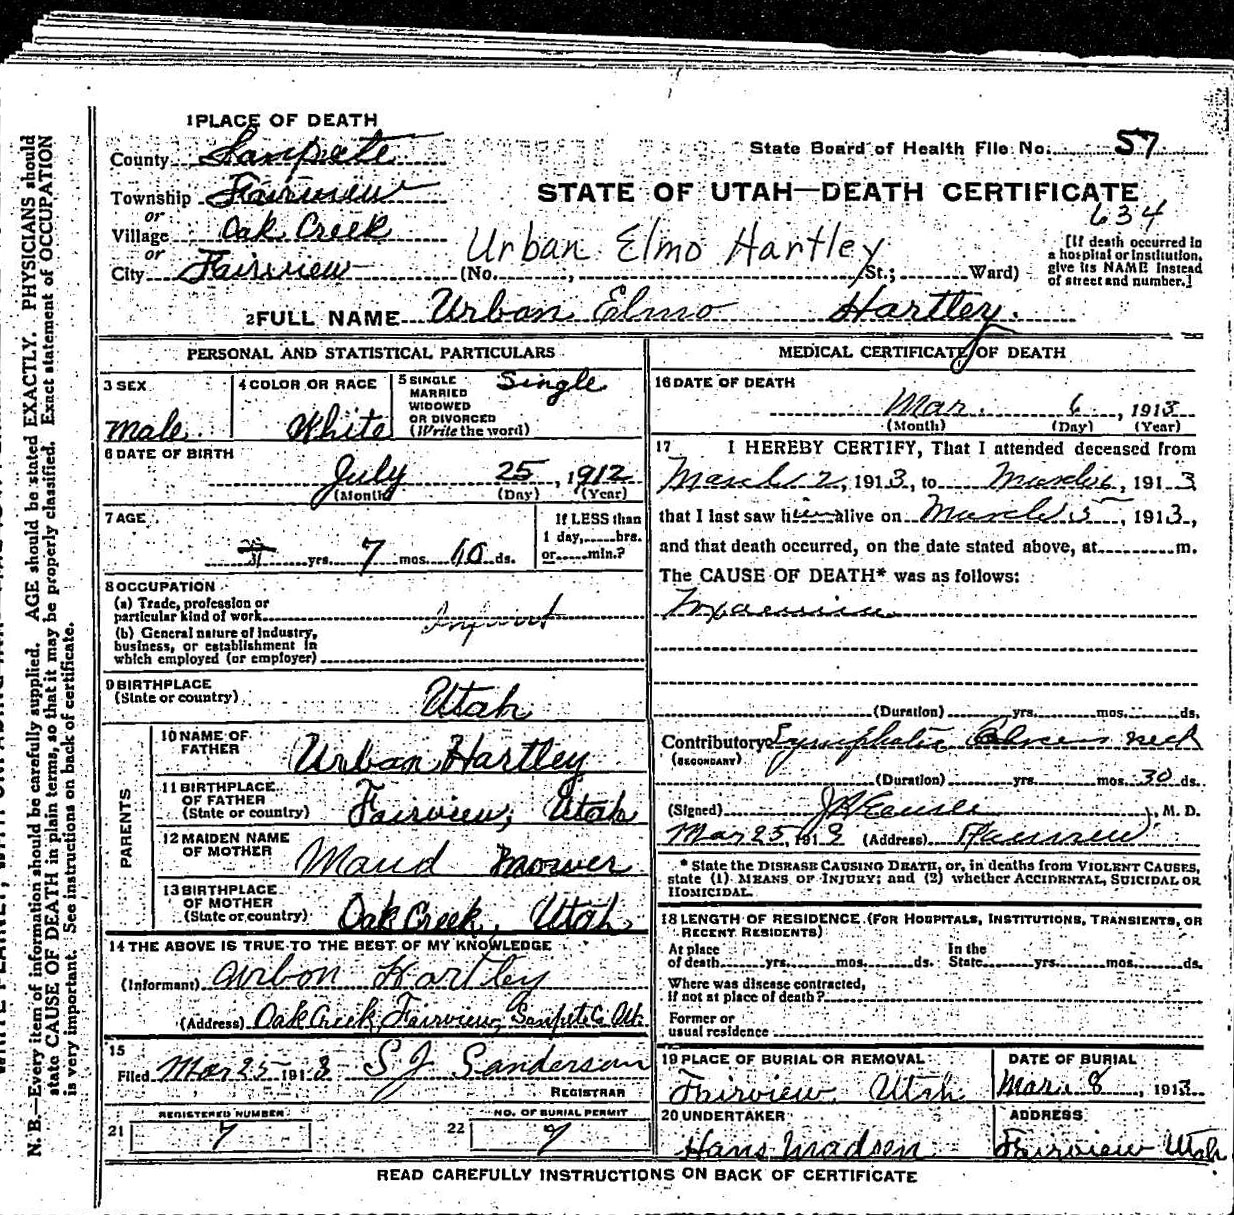 1 PLACE OF DEATH
County Sanpete
State Board of Health File No. 57
Township Fairview
STATE OF UTAH—DEATH CERTIFICATE
634
or
Village Oak Creek
or
City Fairview
Urban Elmo Hartley
(No. , St.; Ward)
[If death occurred in
a hospital or institution,
give its NAME instead
of street and number.]
2 FULL NAME Urban Elmo Hartley.
PERSONAL AND STATISTICAL PARTICULARS
3 SEX
Male
4 COLOR OR RACE
White
5 SINGLE
MARRIED
WIDOWED
OR DIVORCED
(Write the word)
Single
6 DATE OF BIRTH
July 25, 1912
(Month) (Day) (Year)
7 AGE
yrs. 7 mos. 10 ds.
If LESS than
1 day, hrs.
or min.?
8 OCCUPATION
(a) Trade, profession or
particular kind of work
Infant
(b) General nature of industry,
business, or establishment in
which employed (or employer)
9 BIRTHPLACE
(State or country)
Utah
PARENTS
10 NAME OF
FATHER
Urban Hartley
11 BIRTHPLACE
OF FATHER
(State or country)
Fairview, Utah
12 MAIDEN NAME
OF MOTHER
Maud Mower
13 BIRTHPLACE
OF MOTHER
(State or country)
Oak Creek, Utah
14 THE ABOVE IS TRUE TO THE BEST OF MY KNOWLEDGE
(Informant) Urbon Hartley
(Address) Oak Creek, Fairview, Sanpete Co. Ut.
15
Filed Mar 25 1913 S J Sanderson
REGISTRAR
REGISTERED NUMBER
21 7
NO. OF BURIAL PERMIT
22 9
MEDICAL CERTIFICATE OF DEATH
16 DATE OF DEATH
Mar. 6, 1913
(Month) (Day) (Year)
17 I HEREBY CERTIFY, That I attended deceased from
March 2, 1913, to March 6, 1913
that I last saw him alive on March 5, 1913,
and that death occurred, on the date stated above, at m.
The CAUSE OF DEATH* was as follows:
(Duration) yrs. mos. ds.
Contributory Lymphatic Abscess neck
(SECONDARY)
(Duration) yrs. mos. 30 ds.
(Signed) , M. D.
Mar 25, 1913 (Address) Fairview
* State the DISEASE CAUSING DEATH, or, in deaths from VIOLENT CAUSES,
state (1) MEANS OF INJURY; and (2) whether ACCIDENTAL, SUICIDAL OR
HOMICIDAL.
18 LENGTH OF RESIDENCE (FOR HOSPITALS, INSTITUTIONS, TRANSIENTS, OR
RECENT RESIDENTS)
At place
of death yrs. mos. ds.
In the
State yrs. mos. ds.
Where was disease contracted,
if not at place of death?
Former or
usual residence
19 PLACE OF BURIAL OR REMOVAL
Fairview Utah
DATE OF BURIAL
Mar. 8, 1913
20 UNDERTAKER
Hans Madsen
ADDRESS
Fairview Utah
READ CAREFULLY INSTRUCTIONS ON BACK OF CERTIFICATE
N. B.—Every item of information should be carefully supplied. AGE should be stated EXACTLY. PHYSICIANS should
state CAUSE OF DEATH in plain terms, so that it may be properly classified. Exact statement of OCCUPATION
is very important. See instructions on back of certificate.